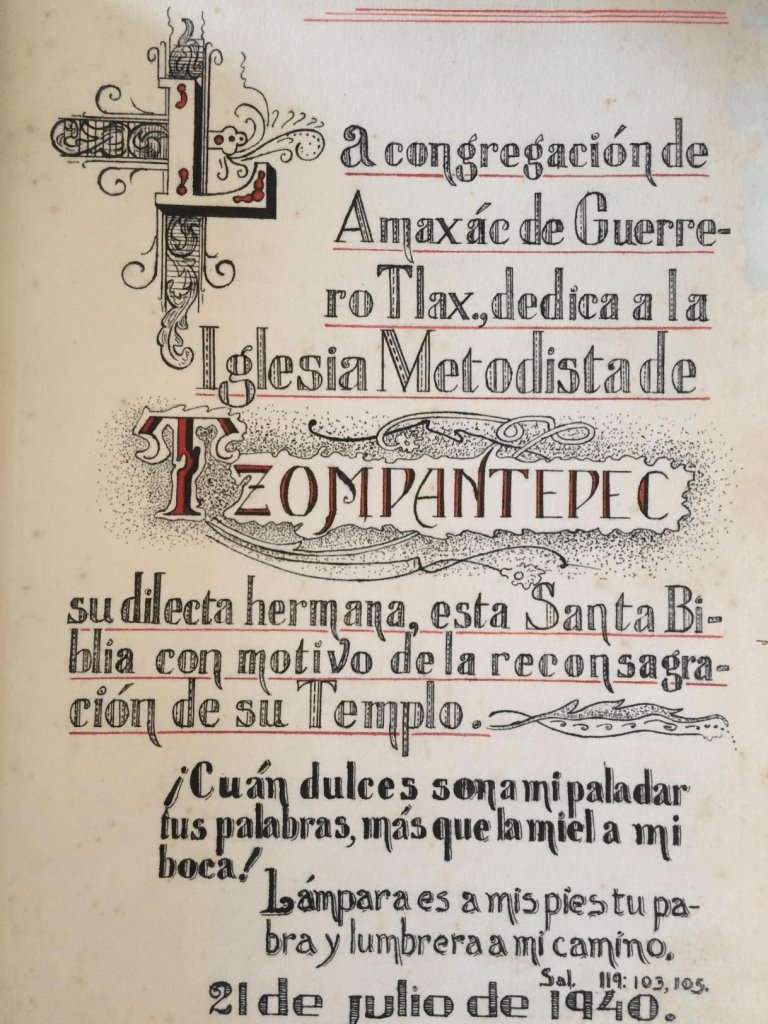 La congregación de
Amaxác de Guerre-
ro Tlax., dedica a la
Iglesia Metodista de
TZOMPANTEPEC
su dilecta hermana, esta Santa Bi-
blia con motivo de la reconsagra-
ción de su Templo.
¡Cuán dulces son a mi paladar
tus palabras, más que la miel a mi
boca!
Lámpara es a mis pies tu pa-
bra y lumbrera a mi camino.
Sal. 119: 103, 105.
21 de julio de 1940.